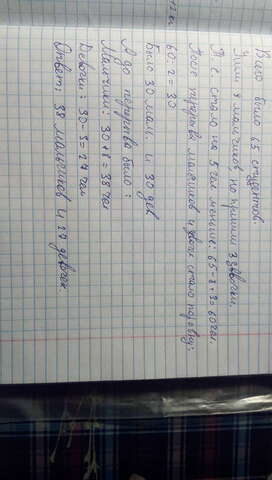 Всего было 65 студентов.
Ушли 8 мальчиков, но пришли 3 девочки.
Т.е. стало на 5 чел меньше: 65-8+3=60 чел.
После перерыва мальчиков и девочек стало поровну:
60:2=30
Было 30 мал. и 30 дев
А до перерыва было:
Мальчики: 30+8=38 чел
Девочки: 30-3=27 чел
Ответ: 38 мальчиков и 27 девочек.